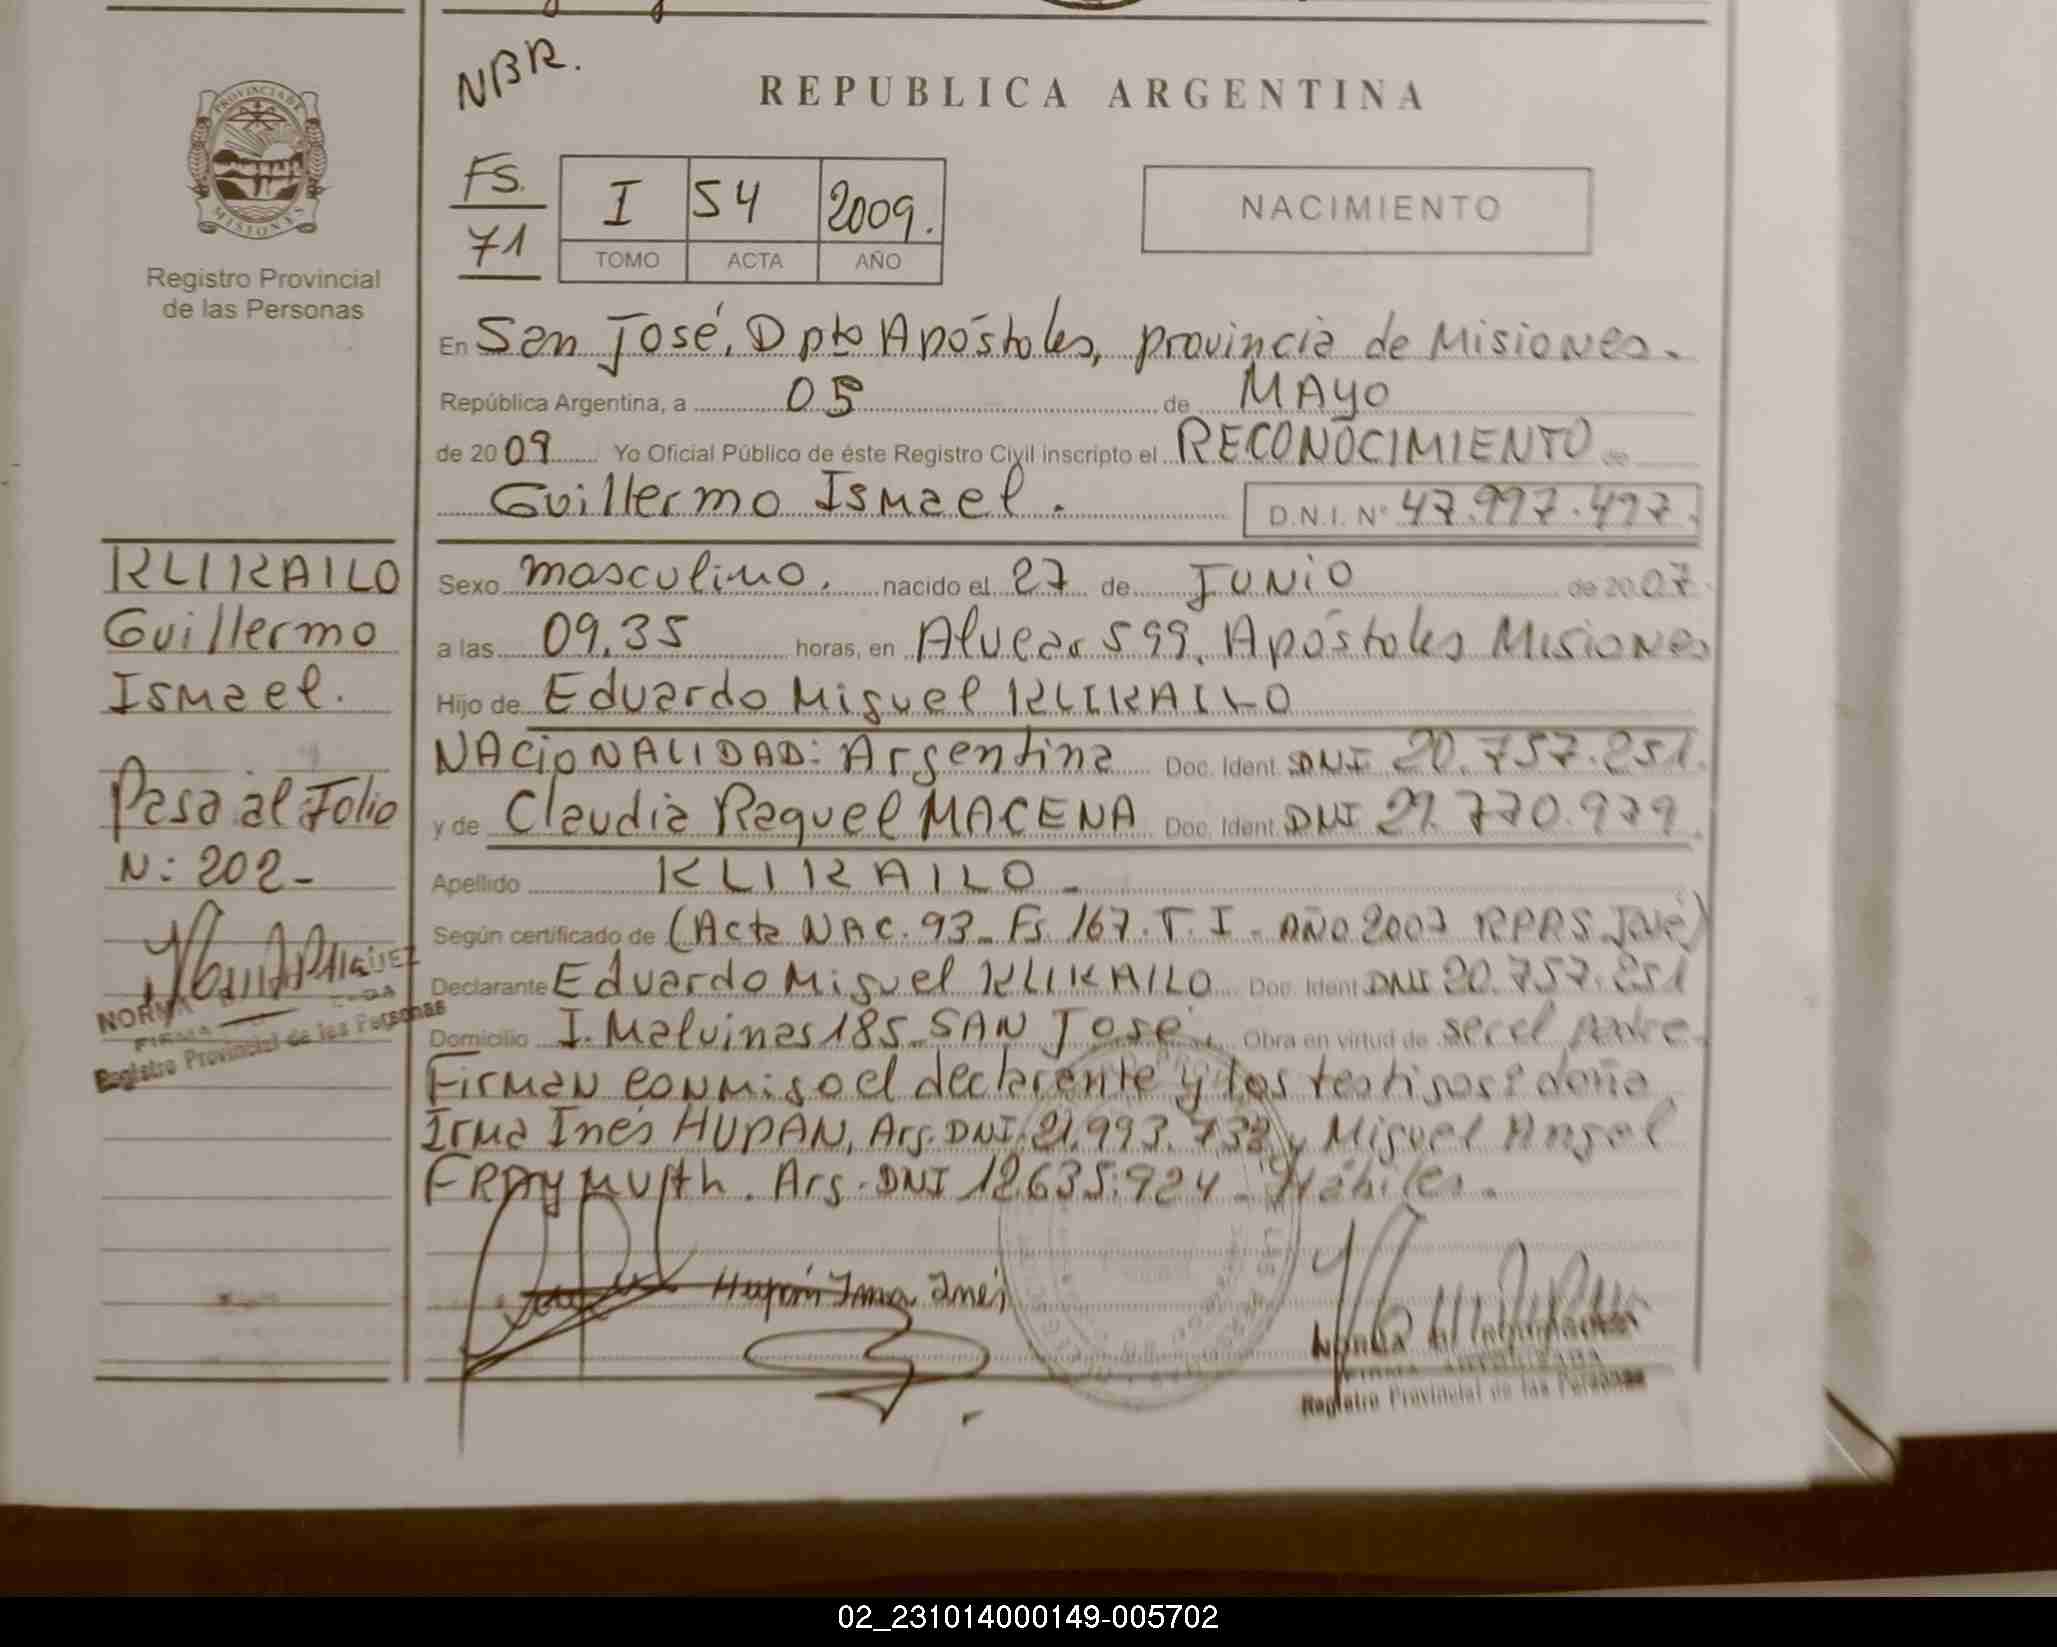 NBR.
REPUBLICA ARGENTINA
PROVINCIA DE
MISIONES
Registro Provincial
de las Personas
FS.
71
I 54 2009.
TOMO ACTA AÑO
NACIMIENTO
En San José, Dpto Apóstoles, provincia de Misiones.
República Argentina, a 05 de MAYO
de 2009 Yo Oficial Público de éste Registro Civil inscripto el RECONOCIMIENTO de
Guillermo Ismael. D.N.I. N° 47.997.497.
KLIKAILO
Guillermo
Ismael.
Pasa al Folio
N: 202-
NORMA
Registro Provincial de las Personas
Sexo masculino. nacido el 27 de JUNIO de 2007.
a las 09.35 horas, en Alvear 599, Apóstoles Misiones
Hijo de Eduardo Miguel KLIKAILO
NACIONALIDAD: Argentina Doc. Ident. DNI 20.757.251.
y de Claudia Raquel MACENA Doc. Ident. DNI 21.770.979.
Apellido KLIKAILO -
Según certificado de (Acta NAC. 93- Fs. 167. T. I - AÑO 2007 RPPS. José)
Declarante Eduardo Miguel KLIKAILO Doc. Ident. DNI 20.757.251
Domicilio I. Malvinas 185. SAN José. Obra en virtud de ser el padre.
Firman conmigo el declarante y los testigos: doña
Irma Inés HUPAN, Arg. DNI. 21.993.738 y Miguel Angel
Arg. DNI 12.635.924 - Hábiles.
Hupán Irma Inés
Registro Provincial de las Personas
02_231014000149-005702